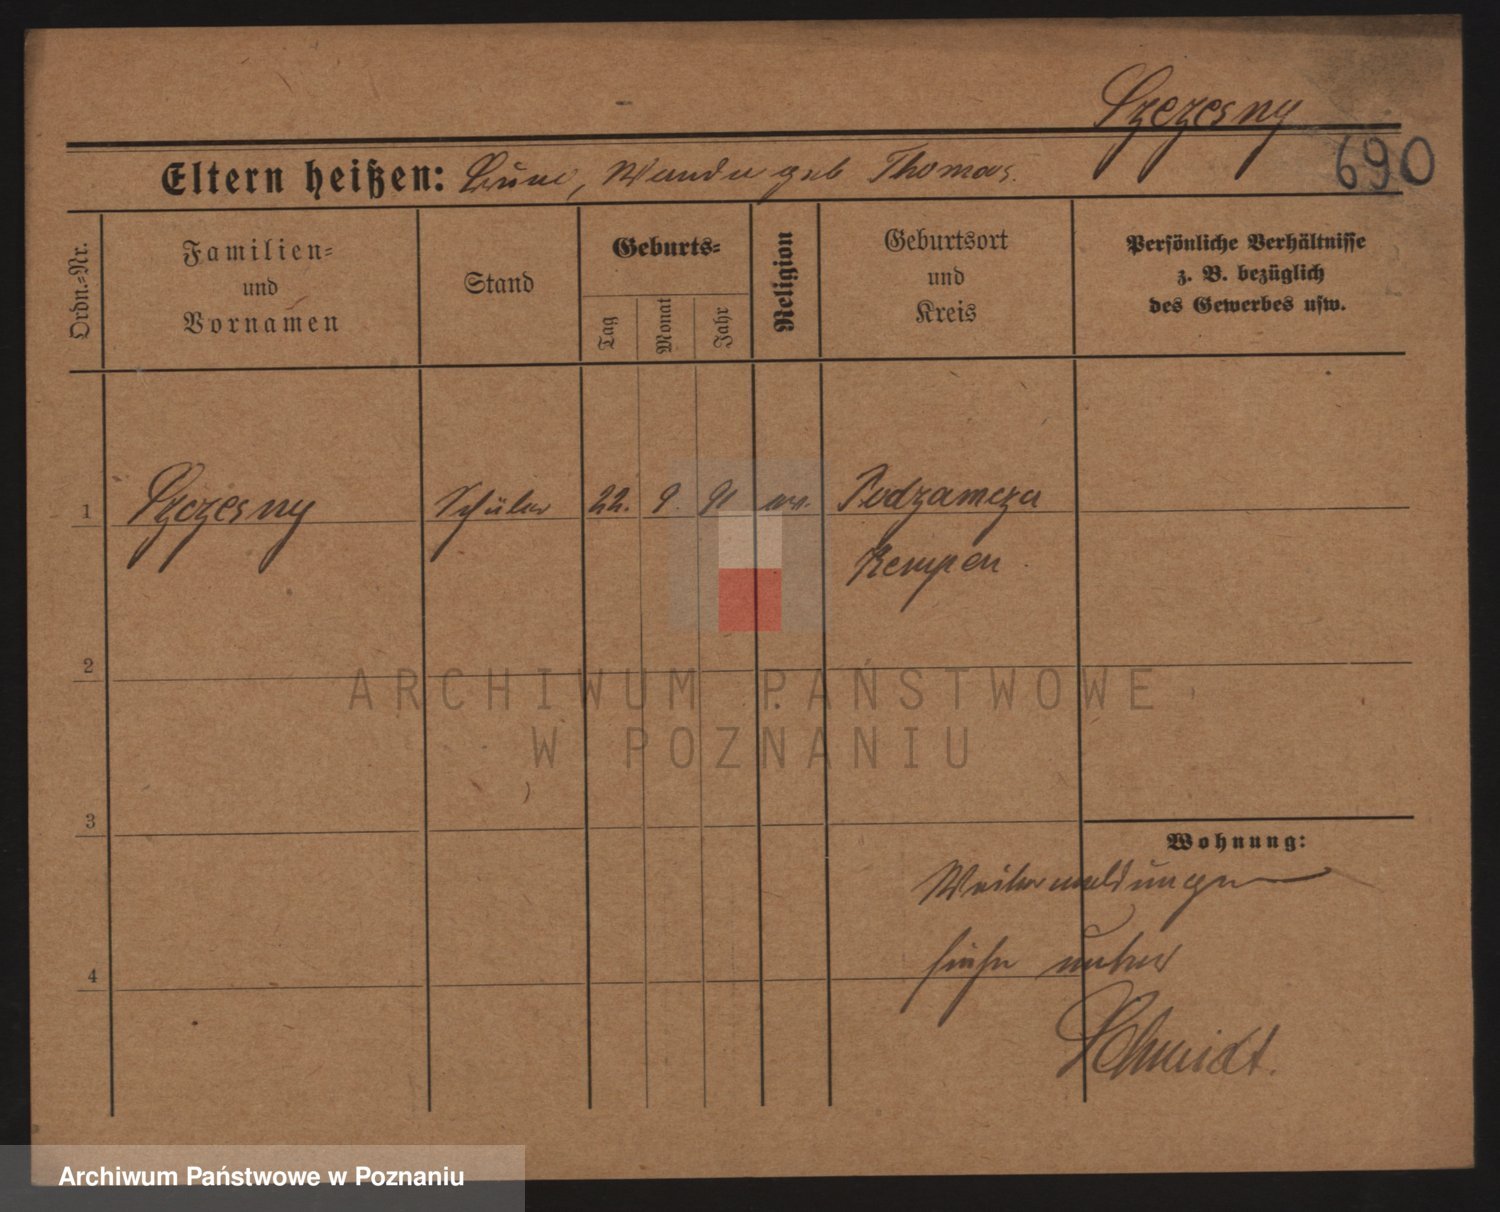 Szczesny
690
Eltern heißen: Wanda geb Thomas.
Ordn.-Nr.
Familien-
und
Vornamen
Stand
Geburts-
Tag
Monat
Jahr
Religion
Geburtsort
und
Kreis
Persönliche Verhältnisse
z. B. bezüglich
des Gewerbes usw.
1 Szczesny Schüler 22. 9. 91 Podzamcze
Kempen
2
ARCHIWUM PAŃSTWOWE
W POZNANIU
3
Wohnung:
Weitermeldungen
siehe unter
4
Schmidt.
Archiwum Państwowe w Poznaniu